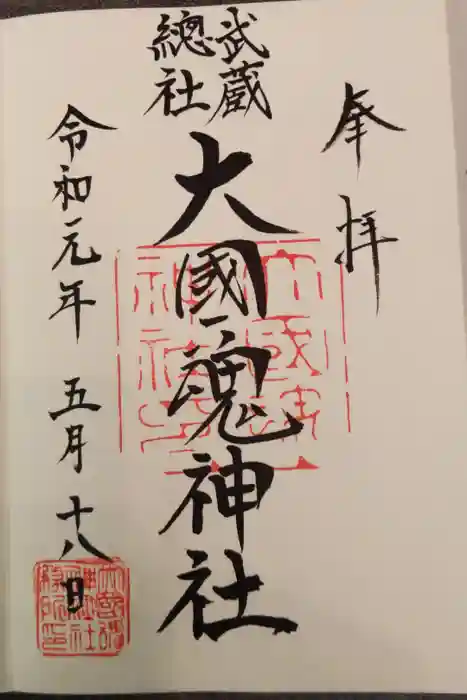 奉拝
武蔵
總社
大國魂神社
令和元年 五月十八日